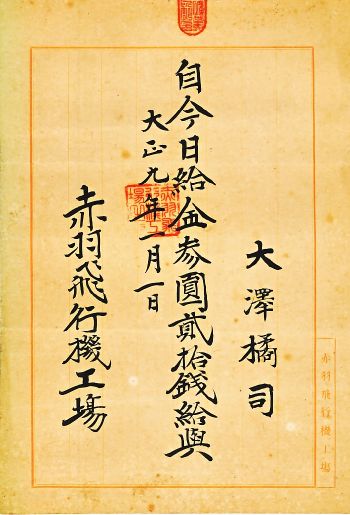 大澤橘司
自今日給金参圓貳拾銭給與
大正九年一月一日
赤羽飛行機工場
赤羽飛行機工場